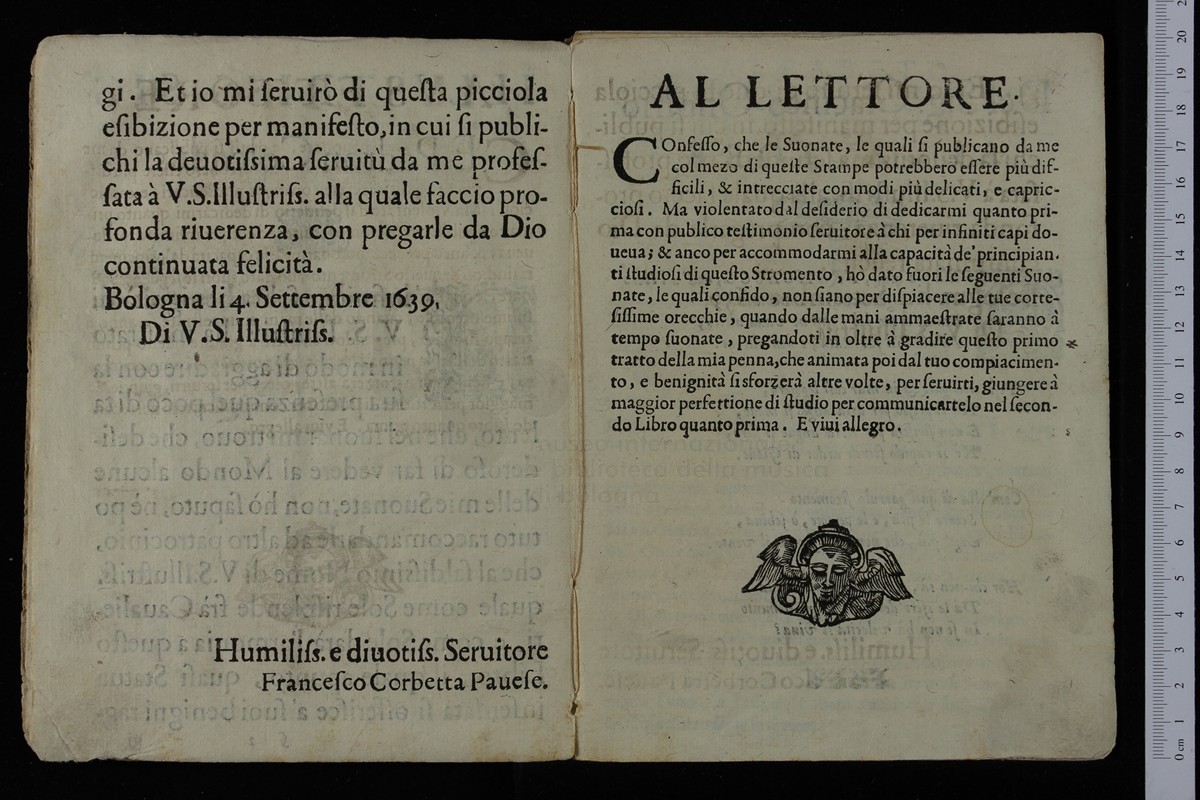 gi. Et io mi ſeruirò di queſta picciola
eſibizione per manifeſto, in cui ſi publi-
chi la deuotiſsima ſeruitù da me profeſ-
ſata à V.S.Illuſtriſs. alla quale faccio pro-
fonda riuerenza, con pregarle da Dio
continuata felicità.
Bologna li 4. Settembre 1639.
Di V.S. Illuſtriſs.
Humiliſs. e diuotiſs. Seruitore
Franceſco Corbetta Paueſe.
AL LETTORE.
COnfeſſo, che le Suonate, le quali ſi publicano da me
col mezo di queſte Stampe potrebbero eſſere più dif-
ficili, & intrecciate con modi più delicati, e capric-
cioſi. Ma violentato dal deſiderio di dedicarmi quanto pri-
ma con publico teſtimonio ſeruitore à chi per infiniti capi do-
ueua; & anco per accommodarmi alla capacità de' principian-
ti ſtudioſi di queſto Stromento, hò dato fuori le ſeguenti Suo-
nate, le quali confido, non ſiano per diſpiacere alle tue corte-
ſiſſime orecchie, quando dalle mani ammaeſtrate ſaranno à
tempo ſuonate, pregandoti in oltre à gradire queſto primo
tratto della mia penna, che animata poi dal tuo compiacimen-
to, e benignità ſi sforzerà altre volte, per ſeruirti, giungere à
maggior perfettione di ſtudio per communicartelo nel ſecon-
do Libro quanto prima. E viui allegro.
museo internazionale
e biblioteca della musica
bologna
0 cm 1 2 3 4 5 6 7 8 9 10 11 12 13 14 15 16 17 18 19 20